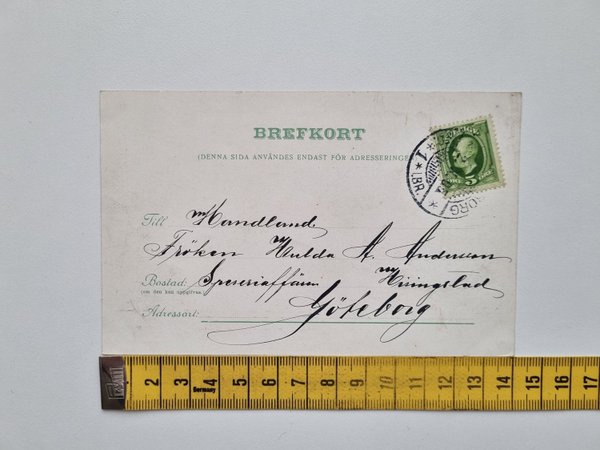 BREFKORT
(DENNA SIDA ANVÄNDES ENDAST FÖR ADRESSERINGEN
Till Handland
Fröken Hulda A. Andersson
Bostad: Speseriaffären
(om den kan uppgifvas)
Adressort: Göteborg
LBR.
1
5
2 3 4 5 6 7 8 9 10 11 12 13 14 15 16 17
Germany